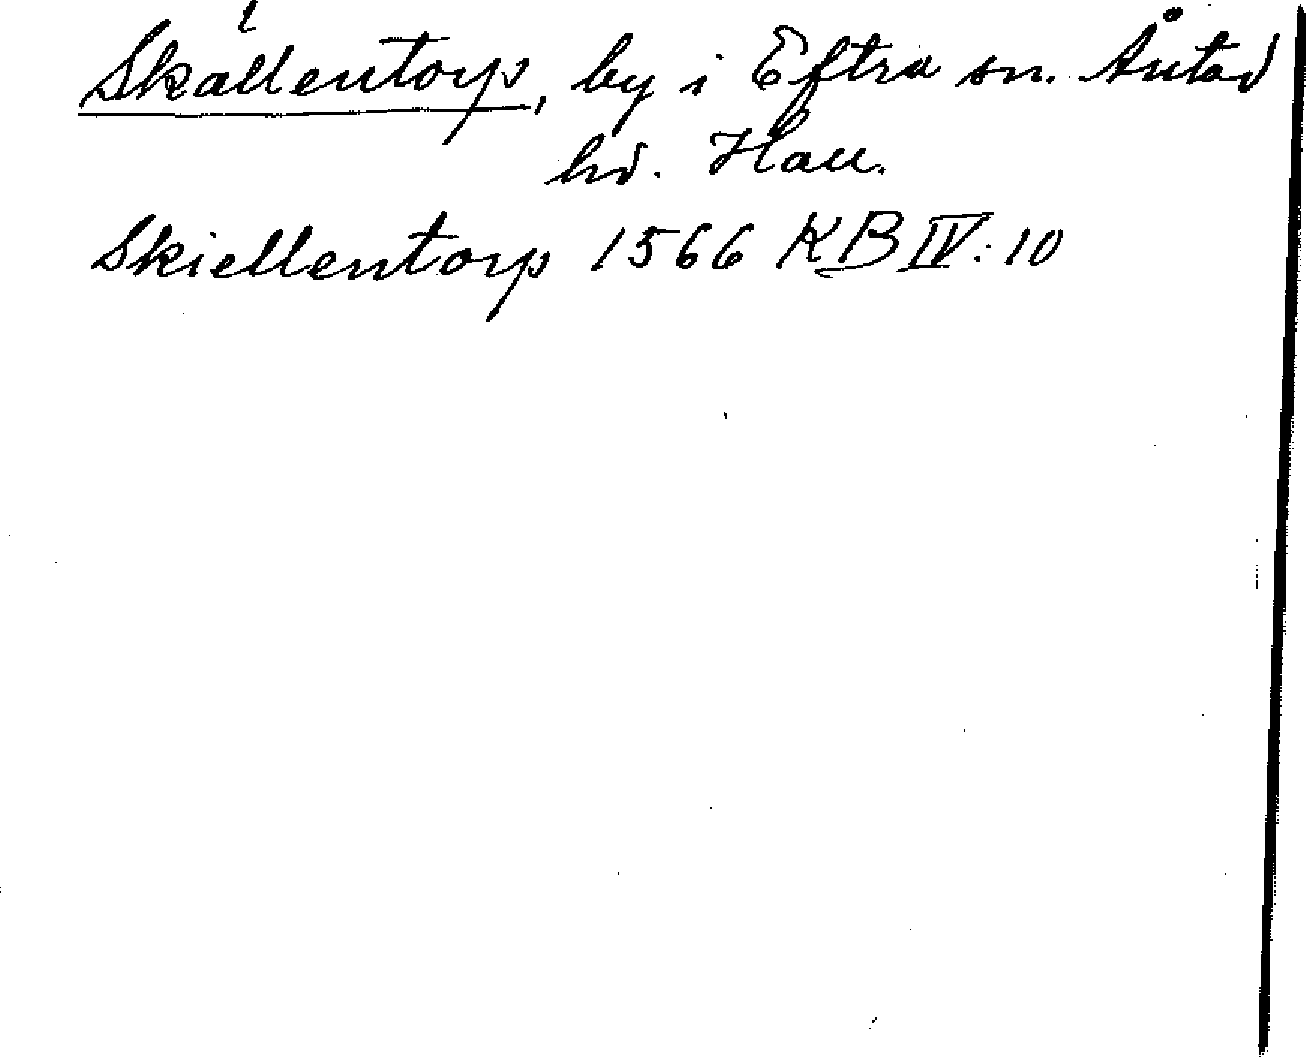 Skällentorp, by i Eftra sn. Årstad
hd. Hall.
Skiellentorp 1566 KB IV:10